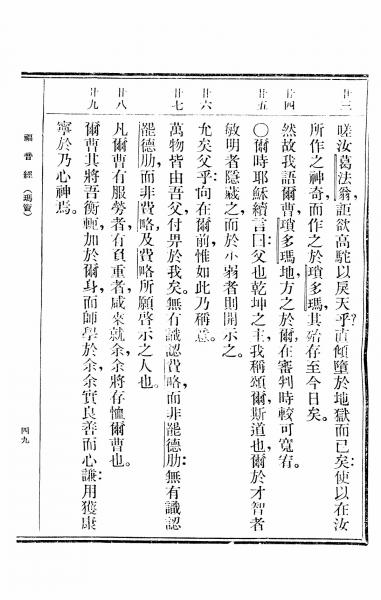 廿三
嗟汝葛法翁,詎欲高駝以戾天乎?直傾墮於地獄而已矣:使以在汝
所作之神奇而作之於瑣多瑪,其殆存至今日矣。
廿四
然故我語爾曹瑣多瑪地方之於爾,在審判時較可寬宥。
廿五
〇爾時耶穌續言曰:父也乾坤之主,我稱頌爾斯道也,爾於才智者
敏明者隱藏之,而於小弱者則開示之。
廿六
允矣父乎:向在爾前,惟如此乃稱意。
廿七
萬物皆由吾父,付畀於我矣。無有識認費略,而非罷德肋:無有識認
罷德肋,而非費略,及費略所願啓示之人也。
廿八
凡爾曹有服勞者,有負重者,咸來就余,余將存恤爾曹也。
廿九
爾曹其將吾衡軛,加於爾身,而師學於余,余實良善而心謙:用獲康
寧於乃心神焉。
福音經 (瑪竇)
四九